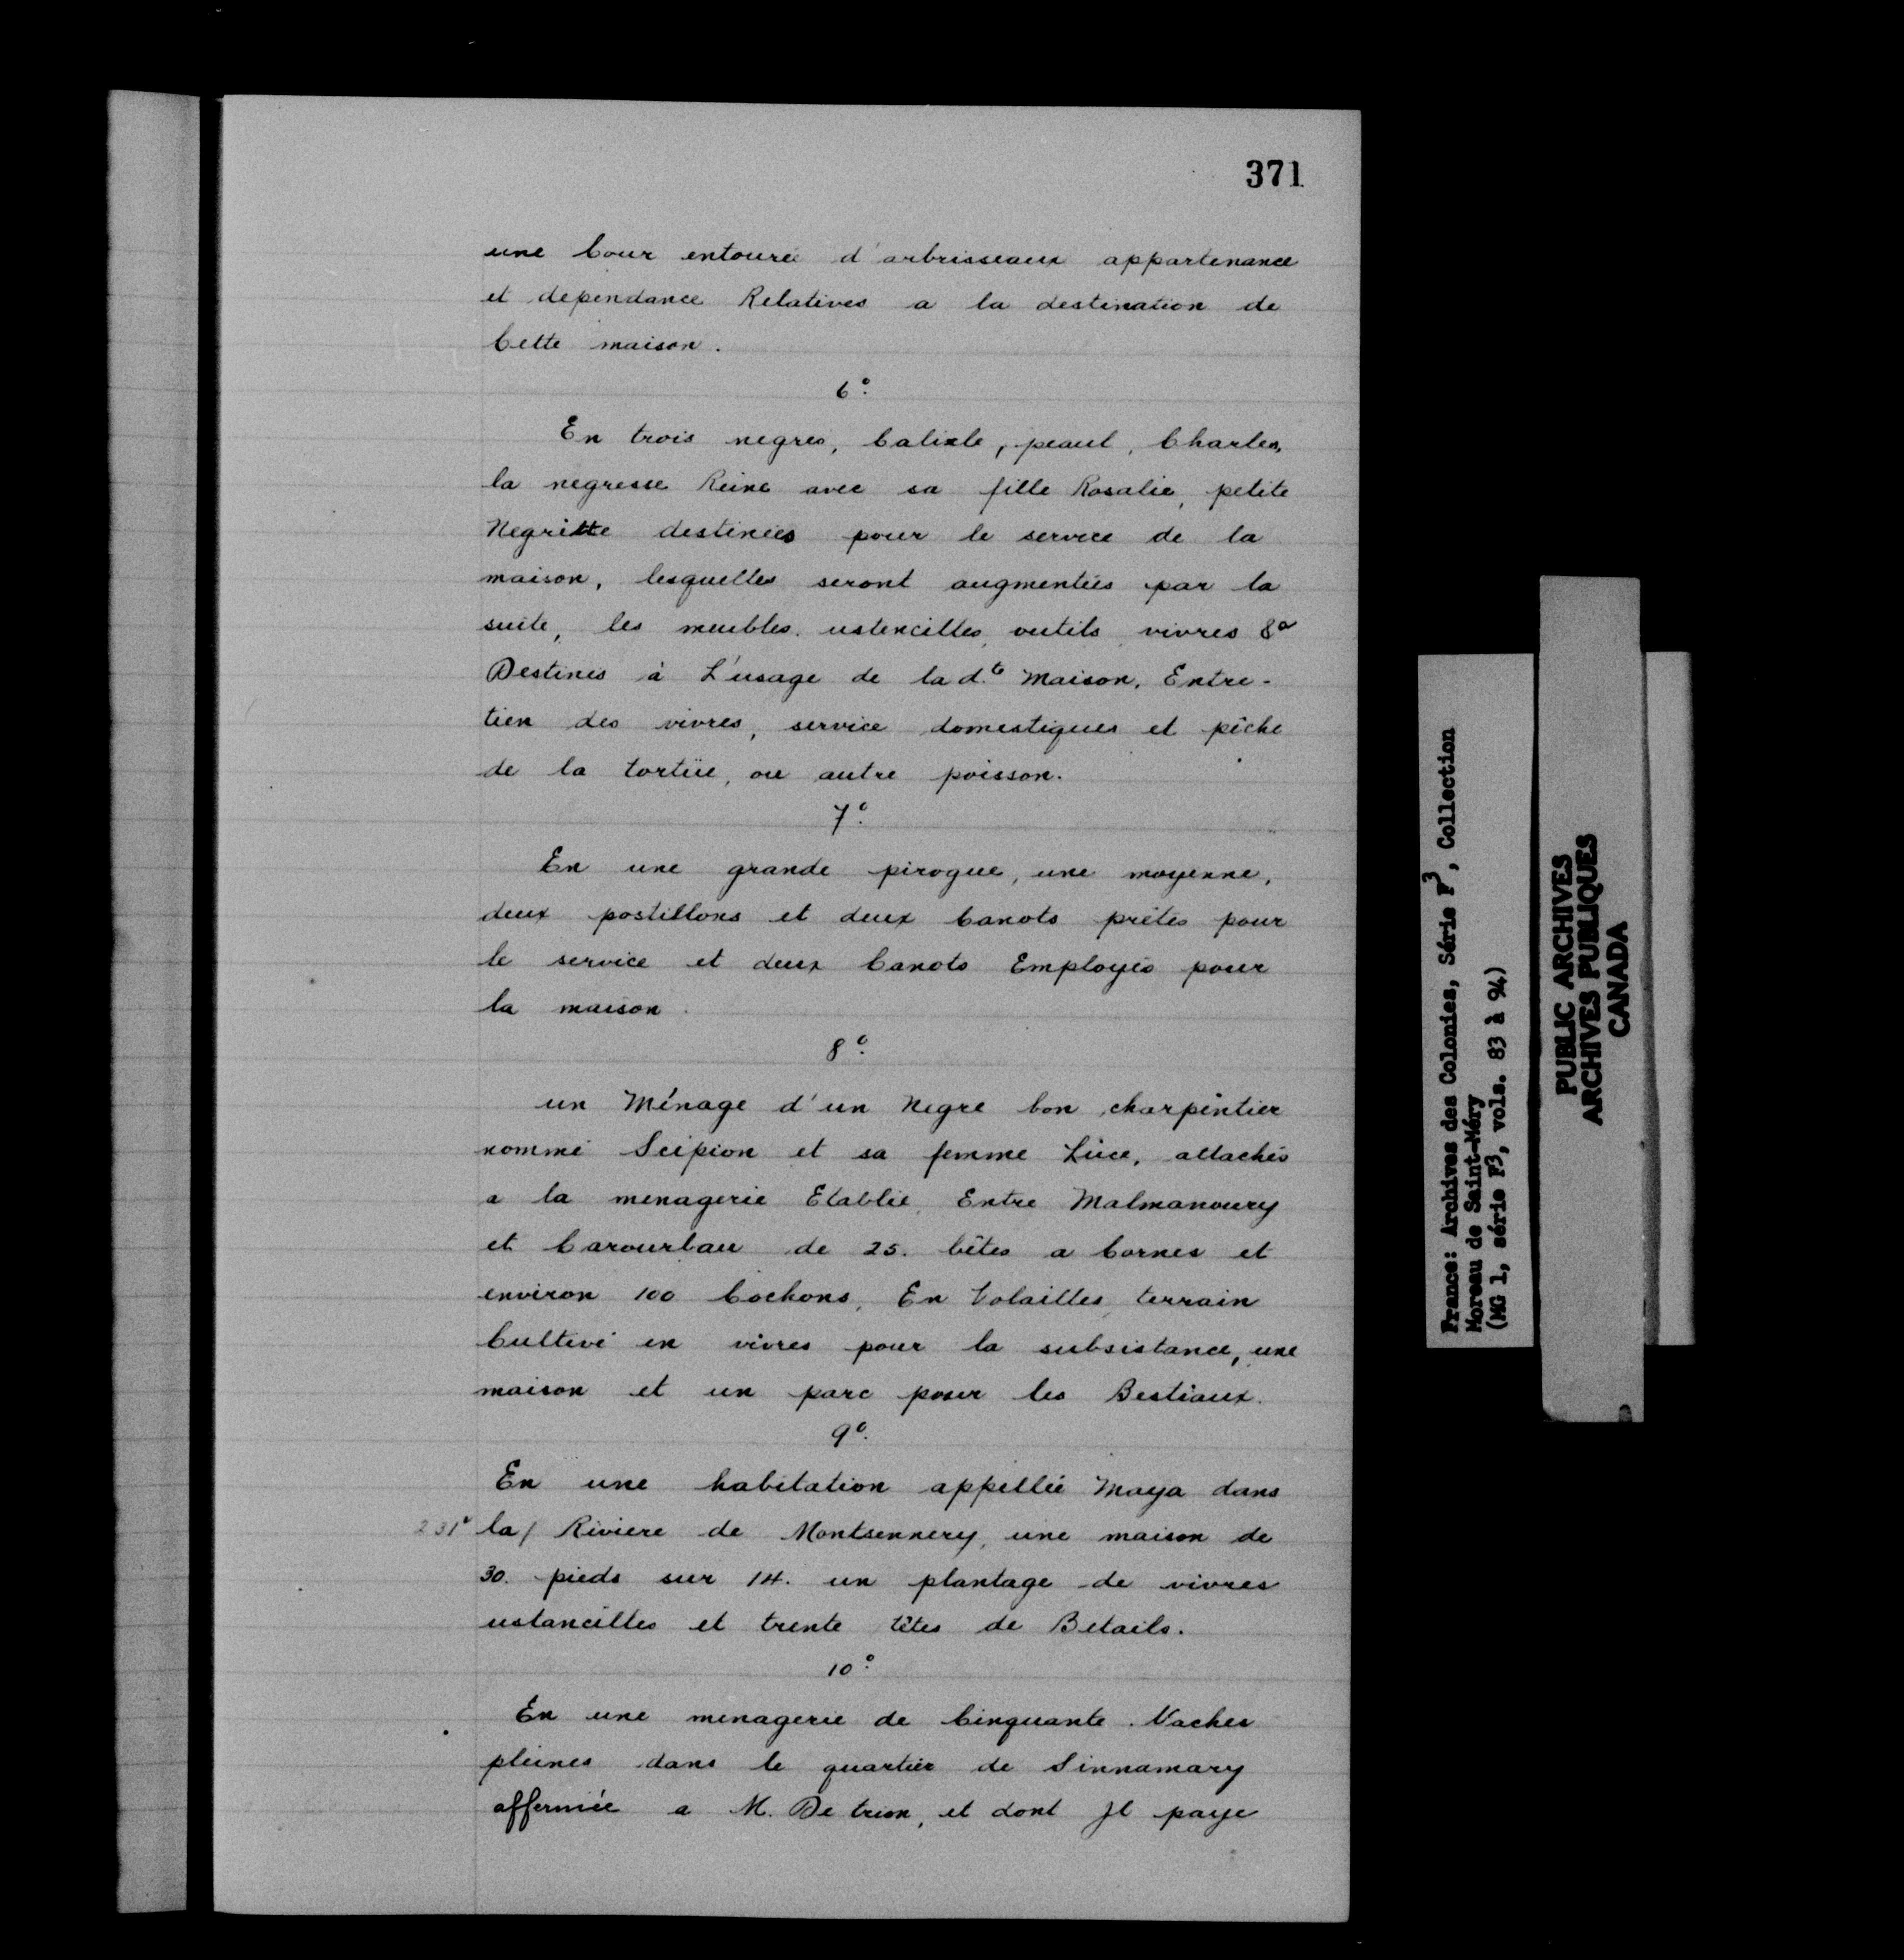 371
une Cour entourée d'arbrisseaux appartenance
et dependance Relatives a la destination de
Cette maison.
6°.
En trois negres, Calixte, peaul, Charles,
la negresse Reine avec sa fille Rosalie, petite
Negritte destinées pour le service de la
maison, lesquelles seront augmentées par la
suite, les meubles, ustencilles, outils, vivres &a
Destinés à L'usage de la d.te Maison, Entre-
tien des vivres, service domestiques et pêche
de la tortüe, ou autre poisson.
7°.
En une grande pirogue, une moyenne,
deux postillons et deux Canots prêtés pour
le service et deux Canots Employés pour
la maison.
8°.
un Ménage d'un Negre bon charpentier
nommé Scipion et sa femme Luce, attachés
a la menagerie Etablie Entre Malmanoury
et Carourbau de 25. bêtes a Cornes et
environ 100 Cochons, En Volailles, terrain
Cultivé en vivres pour la subsistance, une
maison et un parc pour les Bestiaux.
9°.
En une habitation appellée Maya dans
231° la/ Riviere de Montsennery, une maison de
30. pieds sur 14. un plantage de vivres
ustancilles et trente têtes de Betails.
10°.
En une menagerie de Cinquante Vaches
pleines dans le quartier de Sinnamary
affermée a M. De trion, et dont Jl paye
France: Archives des Colonies, Série F3, Collection
Moreau de Saint-Méry
(MG 1, série F3, vols. 83 à 94)
PUBLIC ARCHIVES
ARCHIVES PUBLIQUES
CANADA